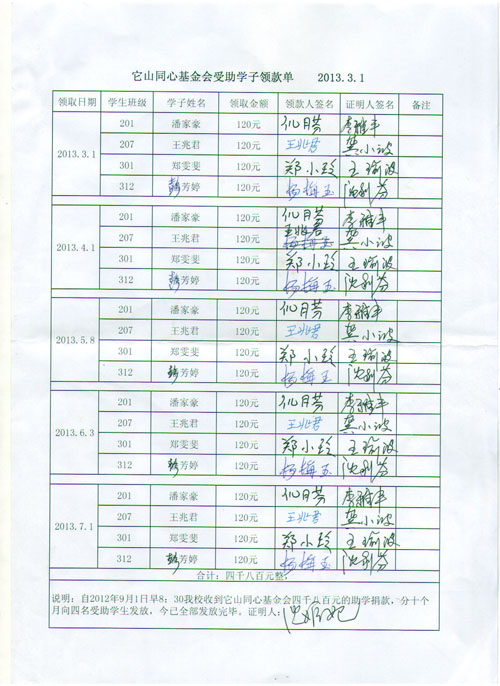 它山同心基金会受助学子领款单 2013.3.1
领取日期 学生班级 学子姓名 领取金额 领款人签名 证明人签名 备注
2013.3.1
201 潘家豪 120元 仉月芳 李雅丰
207 王兆君 120元 王兆君 龚小波
301 郑雯斐 120元 郑小玲 王瑜波
312 彭芳婷 120元 杨梅玉 沈利芬
2013.4.1
201 潘家豪 120元 仉月芳 李雅丰
207 王兆君 120元 王兆君 龚小波
301 郑雯斐 120元 郑小玲 王瑜波
312 彭芳婷 120元 杨梅玉 沈利芬
2013.5.8
201 潘家豪 120元 仉月芳 李雅丰
207 王兆君 120元 王兆君 龚小波
301 郑雯斐 120元 郑小玲 王瑜波
312 彭芳婷 120元 杨梅玉 沈利芬
2013.6.3
201 潘家豪 120元 仉月芳 李雅丰
207 王兆君 120元 王兆君 龚小波
301 郑雯斐 120元 郑小玲 王瑜波
312 彭芳婷 120元 杨梅玉 沈利芬
2013.7.1
201 潘家豪 120元 仉月芳 李雅丰
207 王兆君 120元 王兆君 龚小波
301 郑雯斐 120元 郑小玲 王瑜波
312 彭芳婷 120元 杨梅玉 沈利芬
合计：四千八百元整，
说明：自2012年9月1日早8：30我校收到它山同心基金会四千八百元的助学捐款，分十个
月向四名受助学生发放，今已全部发放完毕。证明人：